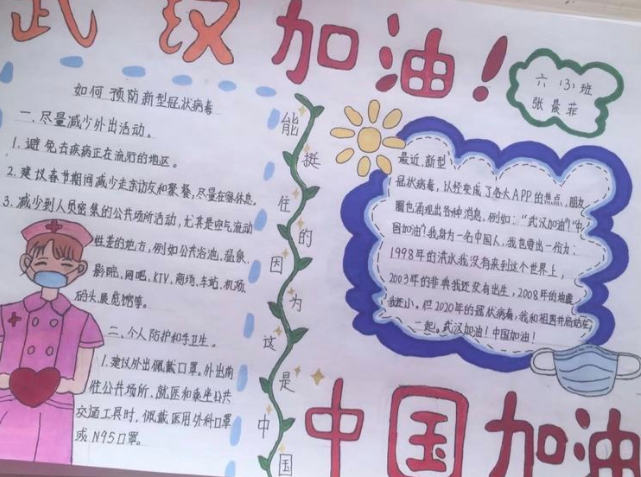 武汉加油！
六(3)班
张晨菲
如何预防新型冠状病毒
一、尽量减少外出活动。
1.避免去疾病正在流行的地区。
2.建议春节期间减少走亲访友和聚餐，尽量在家休息。
3.减少到人员密集的公共场所活动，尤其是空气流动
性差的地方，例如公共浴池、温泉、
影院、网吧、KTV、商场、车站、机场、
码头、展览馆等。
二、个人防护和手卫生。
1.建议外出佩戴口罩。外出前
往公共场所、就医和乘坐公共
交通工具时，佩戴医用外科口罩
或N95口罩。
能挺住的因为这是中国
最近，新型
冠状病毒，以经变成了各大APP的热点，朋友
圈也涌现出各种消息，例如："武汉加油""中
国加油"我身为一名中国人，我也尽出一份力：
1998年的洪水我没有来到这个世界上，
2003年的非典我还没有出生，2008年的地震
我还小，但2020年的冠状病毒，我和祖国并肩站在
一起。武汉加油！中国加油！
中国加油